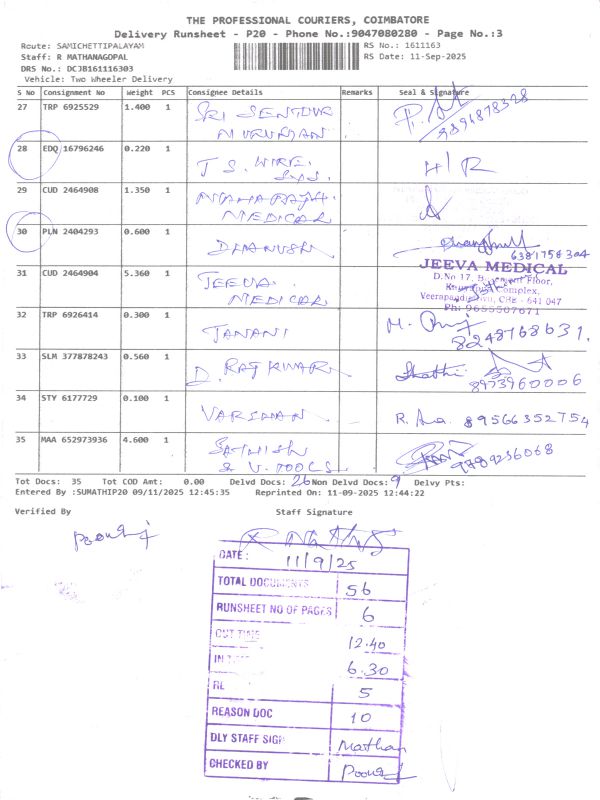 THE PROFESSIONAL COURIERS, COIMBATORE
Delivery Runsheet - P20 - Phone No.:9047080280 - Page No.:3
Route: SAMICHETTIPALAYAM RS No.: 1611163
Staff: R MATHANAGOPAL RS Date: 11-Sep-2025
DRS No.: DCJB161116303
Vehicle: Two Wheeler Delivery
S No Consignment No Weight PCS Consignee Details Remarks Seal & Signature
27 TRP 6925529 1.400 1 SRI SENTDUR
MURUGAN 9896878328
28 EDQ 16796246 0.220 1 T S. WIRE. H/R
29 CUD 2464908 1.350 1 MAHARAJA.
MEDICAL
30 PLN 2404293 0.600 1 DHANUSH 6381758304
31 CUD 2464904 5.360 1 JEEVA.
MEDICAL
JEEVA MEDICAL
D.No 17, Basement Floor,
Complex,
CBE - 641 047
Ph: 9655507671
32 TRP 6926414 0.300 1 JANANI M. 8248768631.
33 SLM 377878243 0.560 1 D. RAJKUMAR 8973960006
34 STY 6177729 0.100 1 VARDHAN R. 89566352754
35 MAA 652973936 4.600 1 SATHISH
& V. TOOLS. 9789236068
Tot Docs: 35 Tot COD Amt: 0.00 Delvd Docs: 26 Non Delvd Docs: 9 Delvy Pts:
Entered By :SUMATHIP20 09/11/2025 12:45:35 Reprinted On: 11-09-2025 12:44:22
Verified By Staff Signature
DATE: 11/9/25
TOTAL DOCUMENTS 56
RUNSHEET NO OF PAGES 6
OUT TIME 12.40
IN TIME 6.30
5
REASON DOC 10
DLY STAFF SIGN Mathan
CHECKED BY